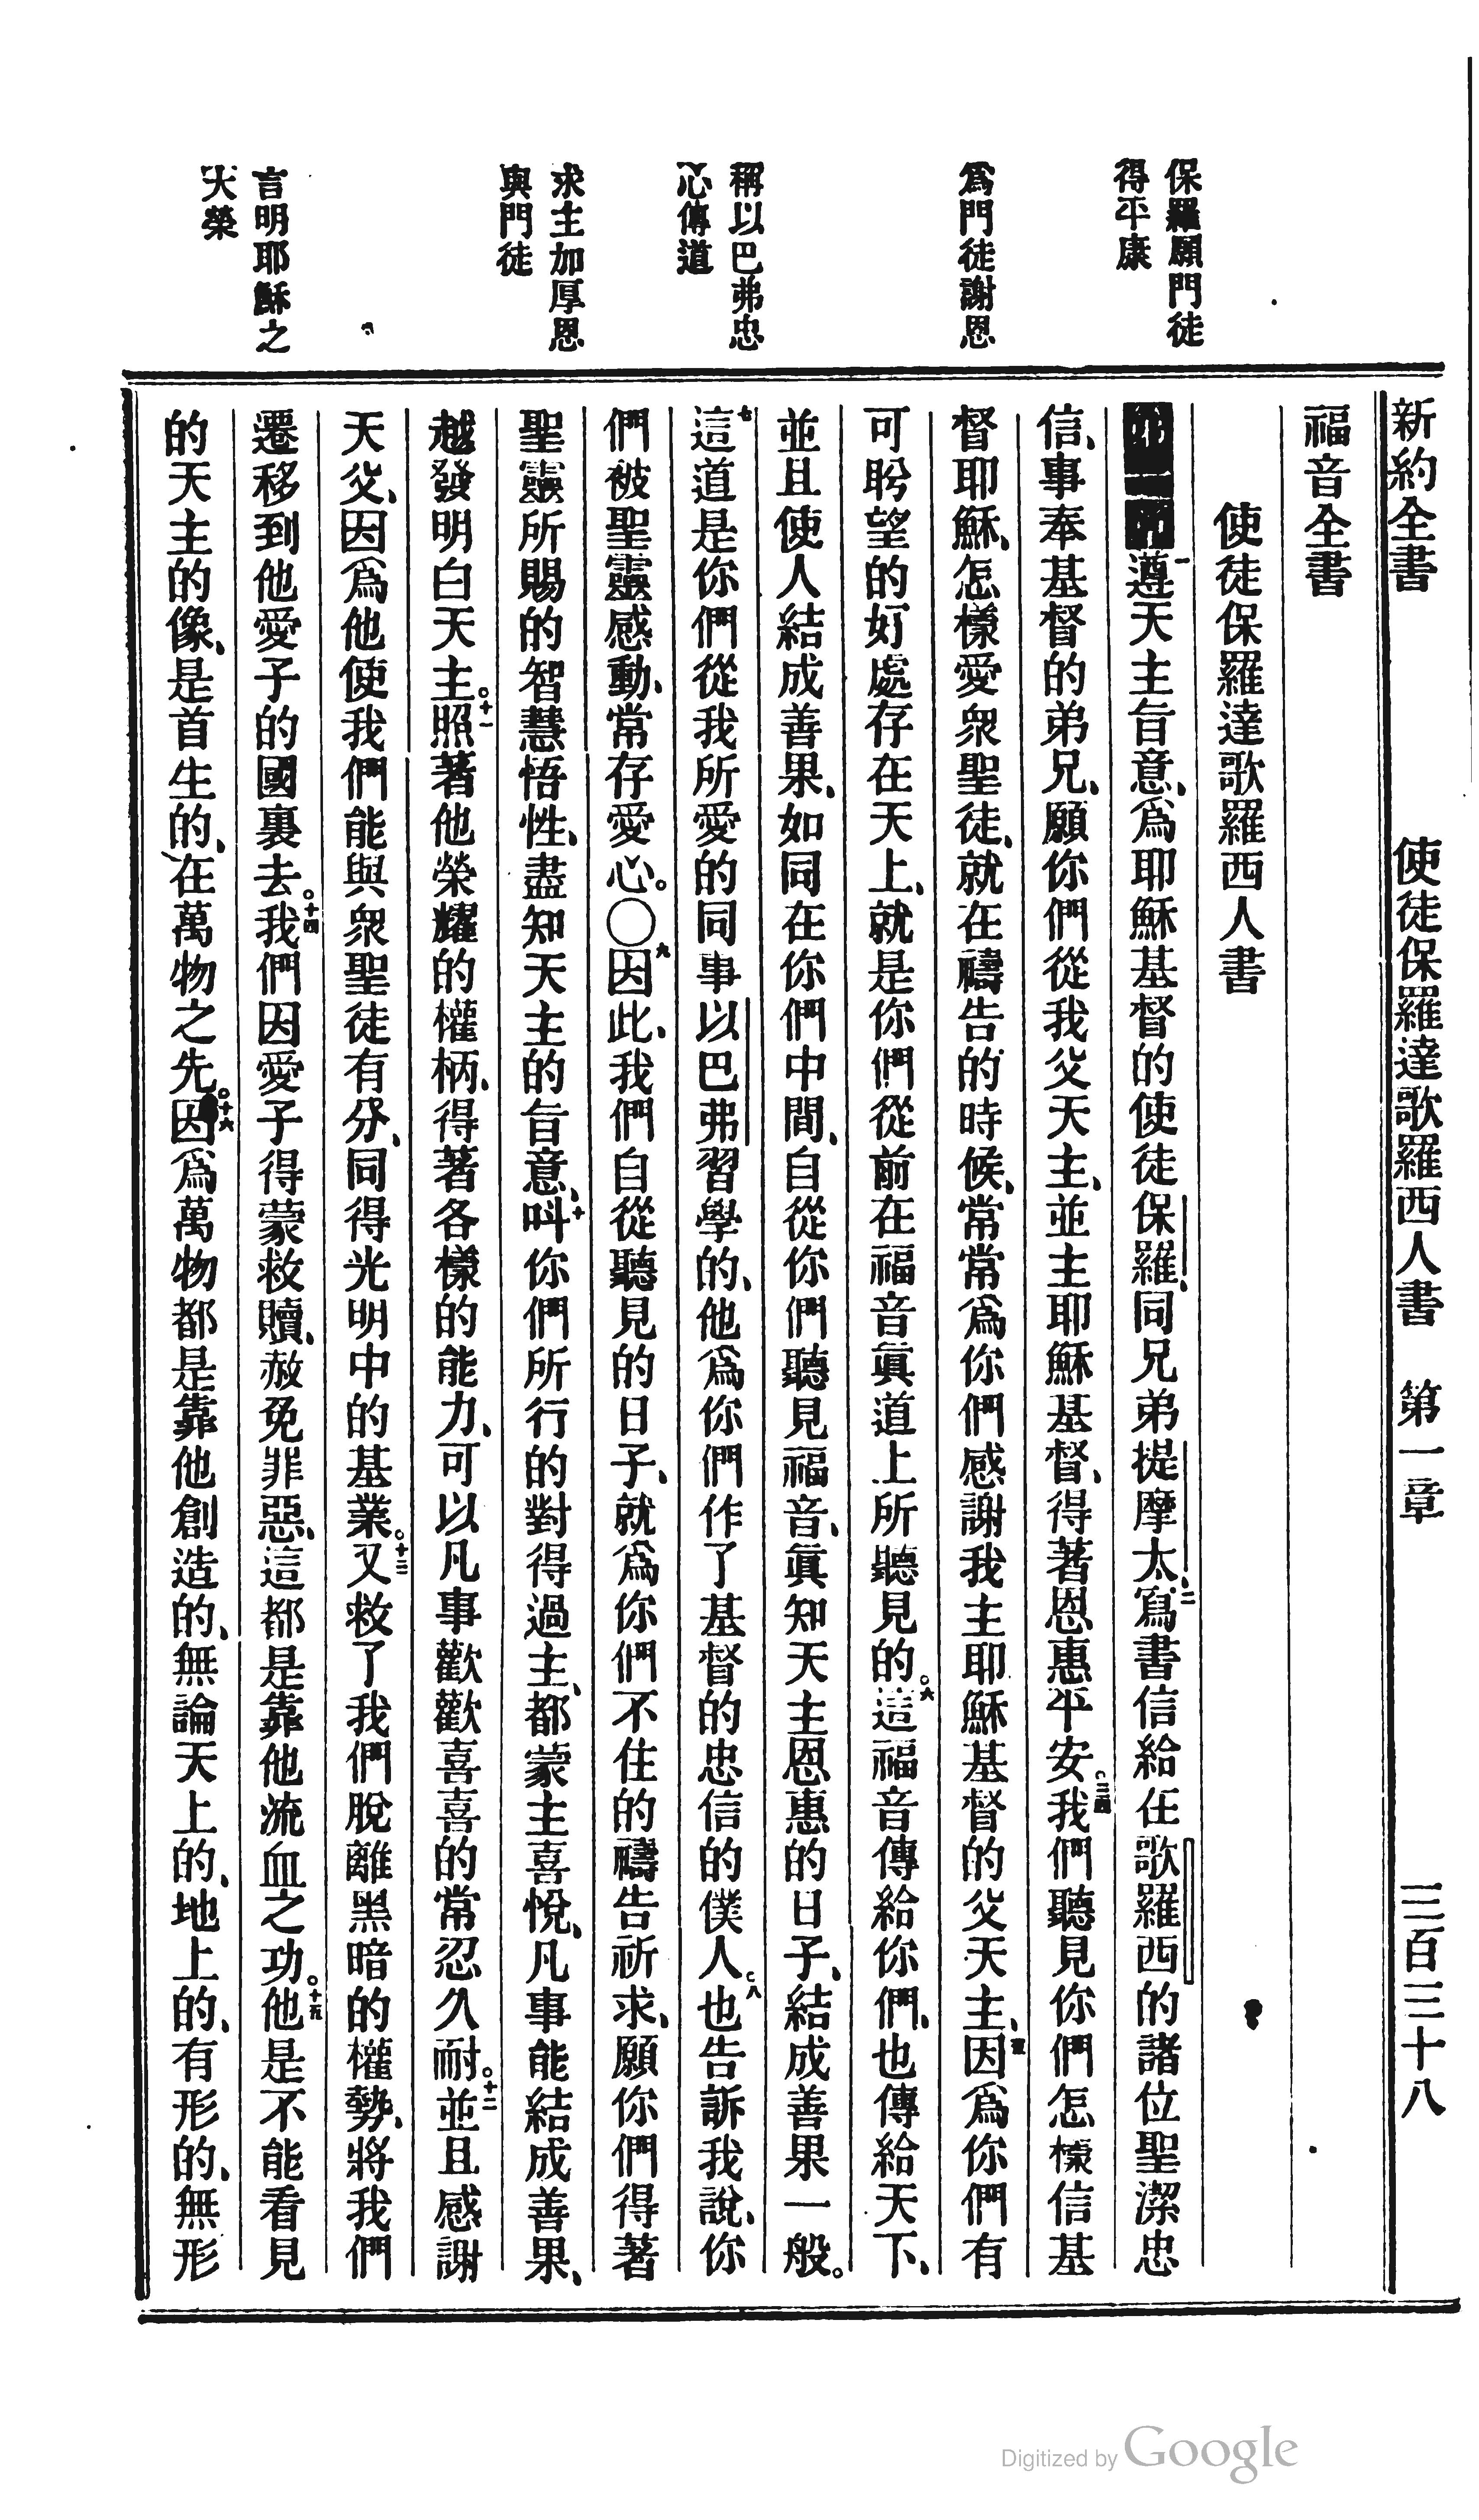 新約全書 使徒保羅達歌羅西人書 第一章 三百三十八
福音全書
使徒保羅達歌羅西人書
保羅願門徒
得平康
為門徒謝恩
稱以巴弗忠
心傳道
求主加厚恩
與門徒
言明耶穌之
大榮
一遵天主旨意、爲耶穌基督的使徒保羅、同兄弟提摩太、二寫書信給在歌羅西的諸位聖潔忠
信、事奉基督的弟兄、願你們從我父天主、並主耶穌基督、得著恩惠平安。三四我們聽見你們怎樣信基
督耶穌、怎樣愛衆聖徒、就在禱告的時候、常常爲你們感謝我主耶穌基督的父天主、五因爲你們有
可盼望的好處存在天上、就是你們從前在福音眞道上所聽見的。六這福音傳給你們、也傳給天下、
並且使人結成善果、如同在你們中間、自從你們聽見福音、眞知天主恩惠的日子、結成善果一般。
七這道是你們從我所愛的同事以巴弗習學的、他爲你們作了基督的忠信的僕人。八也告訴我說、你
們被聖靈感動、常存愛心。〇九因此、我們自從聽見的日子、就爲你們不住的禱告祈求、願你們得著
聖靈所賜的智慧悟性、盡知天主的旨意、十呌你們所行的對得過主、都蒙主喜悅、凡事能結成善果、
越發明白天主。十一照著他榮耀的權柄、得著各樣的能力、可以凡事歡歡喜喜的常忍久耐。十二並且感謝
天父、因爲他使我們能與衆聖徒有分、同得光明中的基業。十三又救了我們脫離黑暗的權勢、將我們
遷移到他愛子的國裏去。十四我們因愛子得蒙救贖、赦免罪惡、這都是靠他流血之功。十五他是不能看見
的天主的像、是首生的、在萬物之先。十六因爲萬物都是靠他創造的、無論天上的、地上的、有形的、無形
Digitized by Google